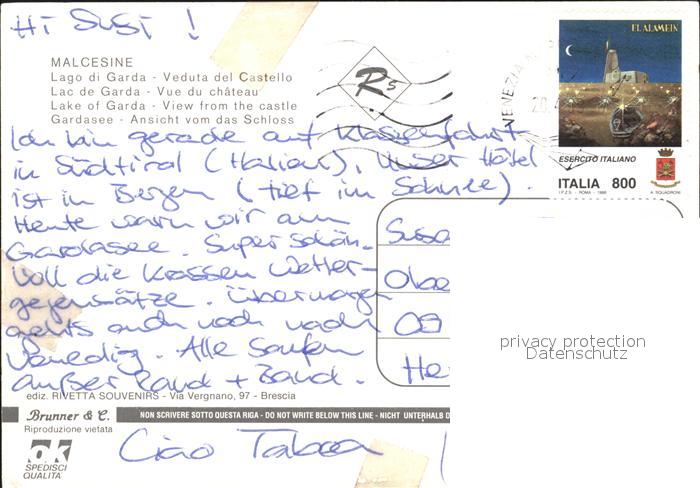 Hi Susi !
MALCESINE
Lago di Garda - Veduta del Castello
Lac de Garda - Vue du château
Lake of Garda - View from the castle
Gardasee - Ansicht vom das Schloss
R5
VENEZIA
EL ALAMEIN
ESERCITO ITALIANO
ITALIA 800
I.P.Z.S. - ROMA - 1998
A. SQUADRONI
Ich bin gerade auf Klassenfahrt
in Südtirol (Italien), unser Hotel
ist in Bergen (tief im Schnee).
Heute warn wir am
Gardasee. Super schön.
Voll die krassen Wetter-
gegensätze. Übermorgen
gehts auch noch nach
Venedig. Alle saufen
außer Rand + Band.
Susa
Obe
09
He
privacy protection
Datenschutz
ediz. RIVETTA SOUVENIRS - Via Vergnano, 97 - Brescia
Brunner & C.
NON SCRIVERE SOTTO QUESTA RIGA - DO NOT WRITE BELOW THIS LINE - NICHT UNTERHALB D
Riproduzione vietata
ok
SPEDISCI
QUALITA'
Ciao